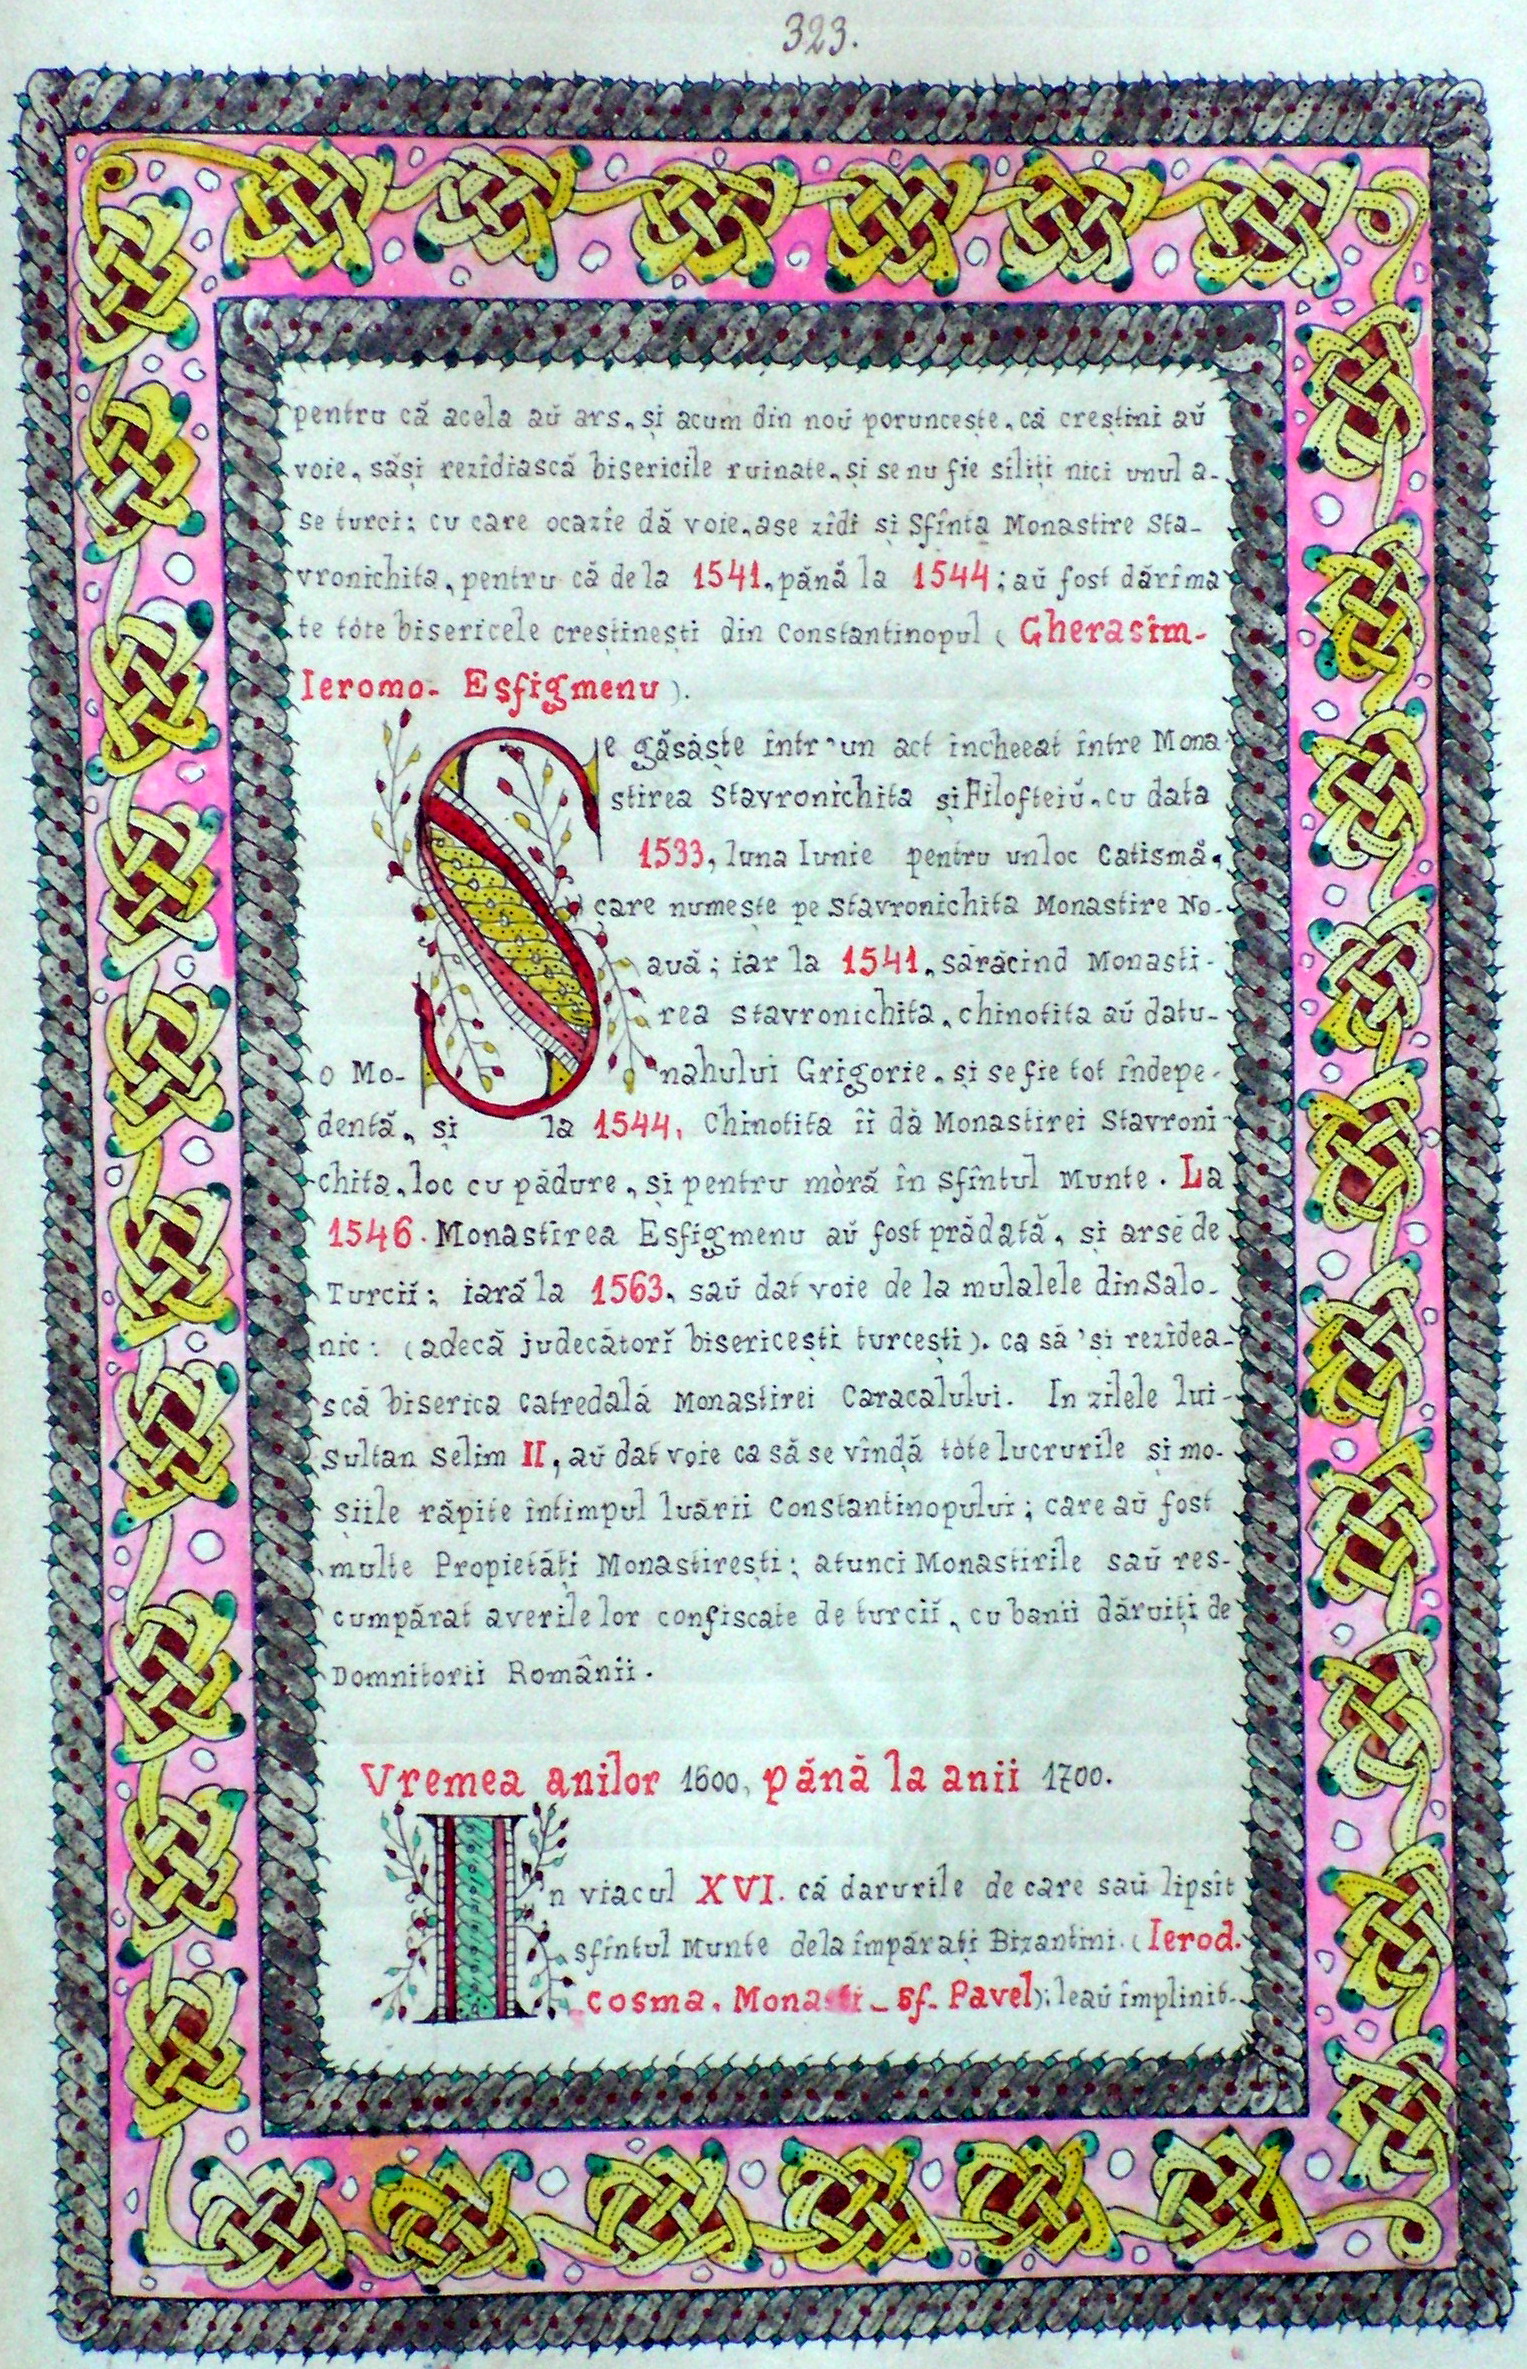 323.
pentru că acela aŭ ars, și acum din noŭ poruncește, că creștini aŭ
voie, săși rezîdiască bisericile ruinate, și se nu fie siliți nici unul a-
se turci: cu care ocazîe dă voie, ase zîdi și Sfînta Monastire Sta-
vronichita, pentru că de la 1541, până la 1544; aŭ fost dărîma
te tóte bisericele creștinești din Constantinopul (Gherasim-
Ieromo- Esfigmenu).
Se găsăște într'un act incheeat între Mona
stirea Stavronichita și Filofteiŭ, cu data
1533, luna Iunie pentru unloc Catismă,
care numește pe Stavronichita Monastire No-
auă; iar la 1541, sărăcind Monasti-
rea Stavronichita, chinotita aŭ datu-
o Mo- nahului Grigorie, și se fie tot îndepe-
dentă, și la 1544, Chinotita îi dă Monastirei Stavroni
chita, loc cu pădure, și pentru mòră în Sfîntul Munte. La
1546. Monastirea Esfigmenu aŭ fost prădată, și arsé de
Turcii: iară la 1563, saŭ dat voie de la mulalele din Salo-
nic: (adecă judecătorĭ bisericești turcești). ca să 'și rezîdea-
scă biserica Catredală Monastirei Caracalului. In zilele lui-
Sultan Selim II, aŭ dat voie ca să se vîndă tòte lucrurile și mo-
șiile răpite întimpul luării Constantinopului; care aŭ fost
multe Propietăți Monastirești: atunci Monastirile saŭ res-
cumpărat averile lor confiscate de turciĭ, cu banii dăruiți de
Domnitorii Românii.
Vremea anilor 1600, până la anii 1700.
In viacul XVI. că darurile de care saŭ lipsît
sfîntul Munte dela împărați Bizantini. (Ierod.
cosma, Monasti- sf- Pavel): leaŭ împlinit-